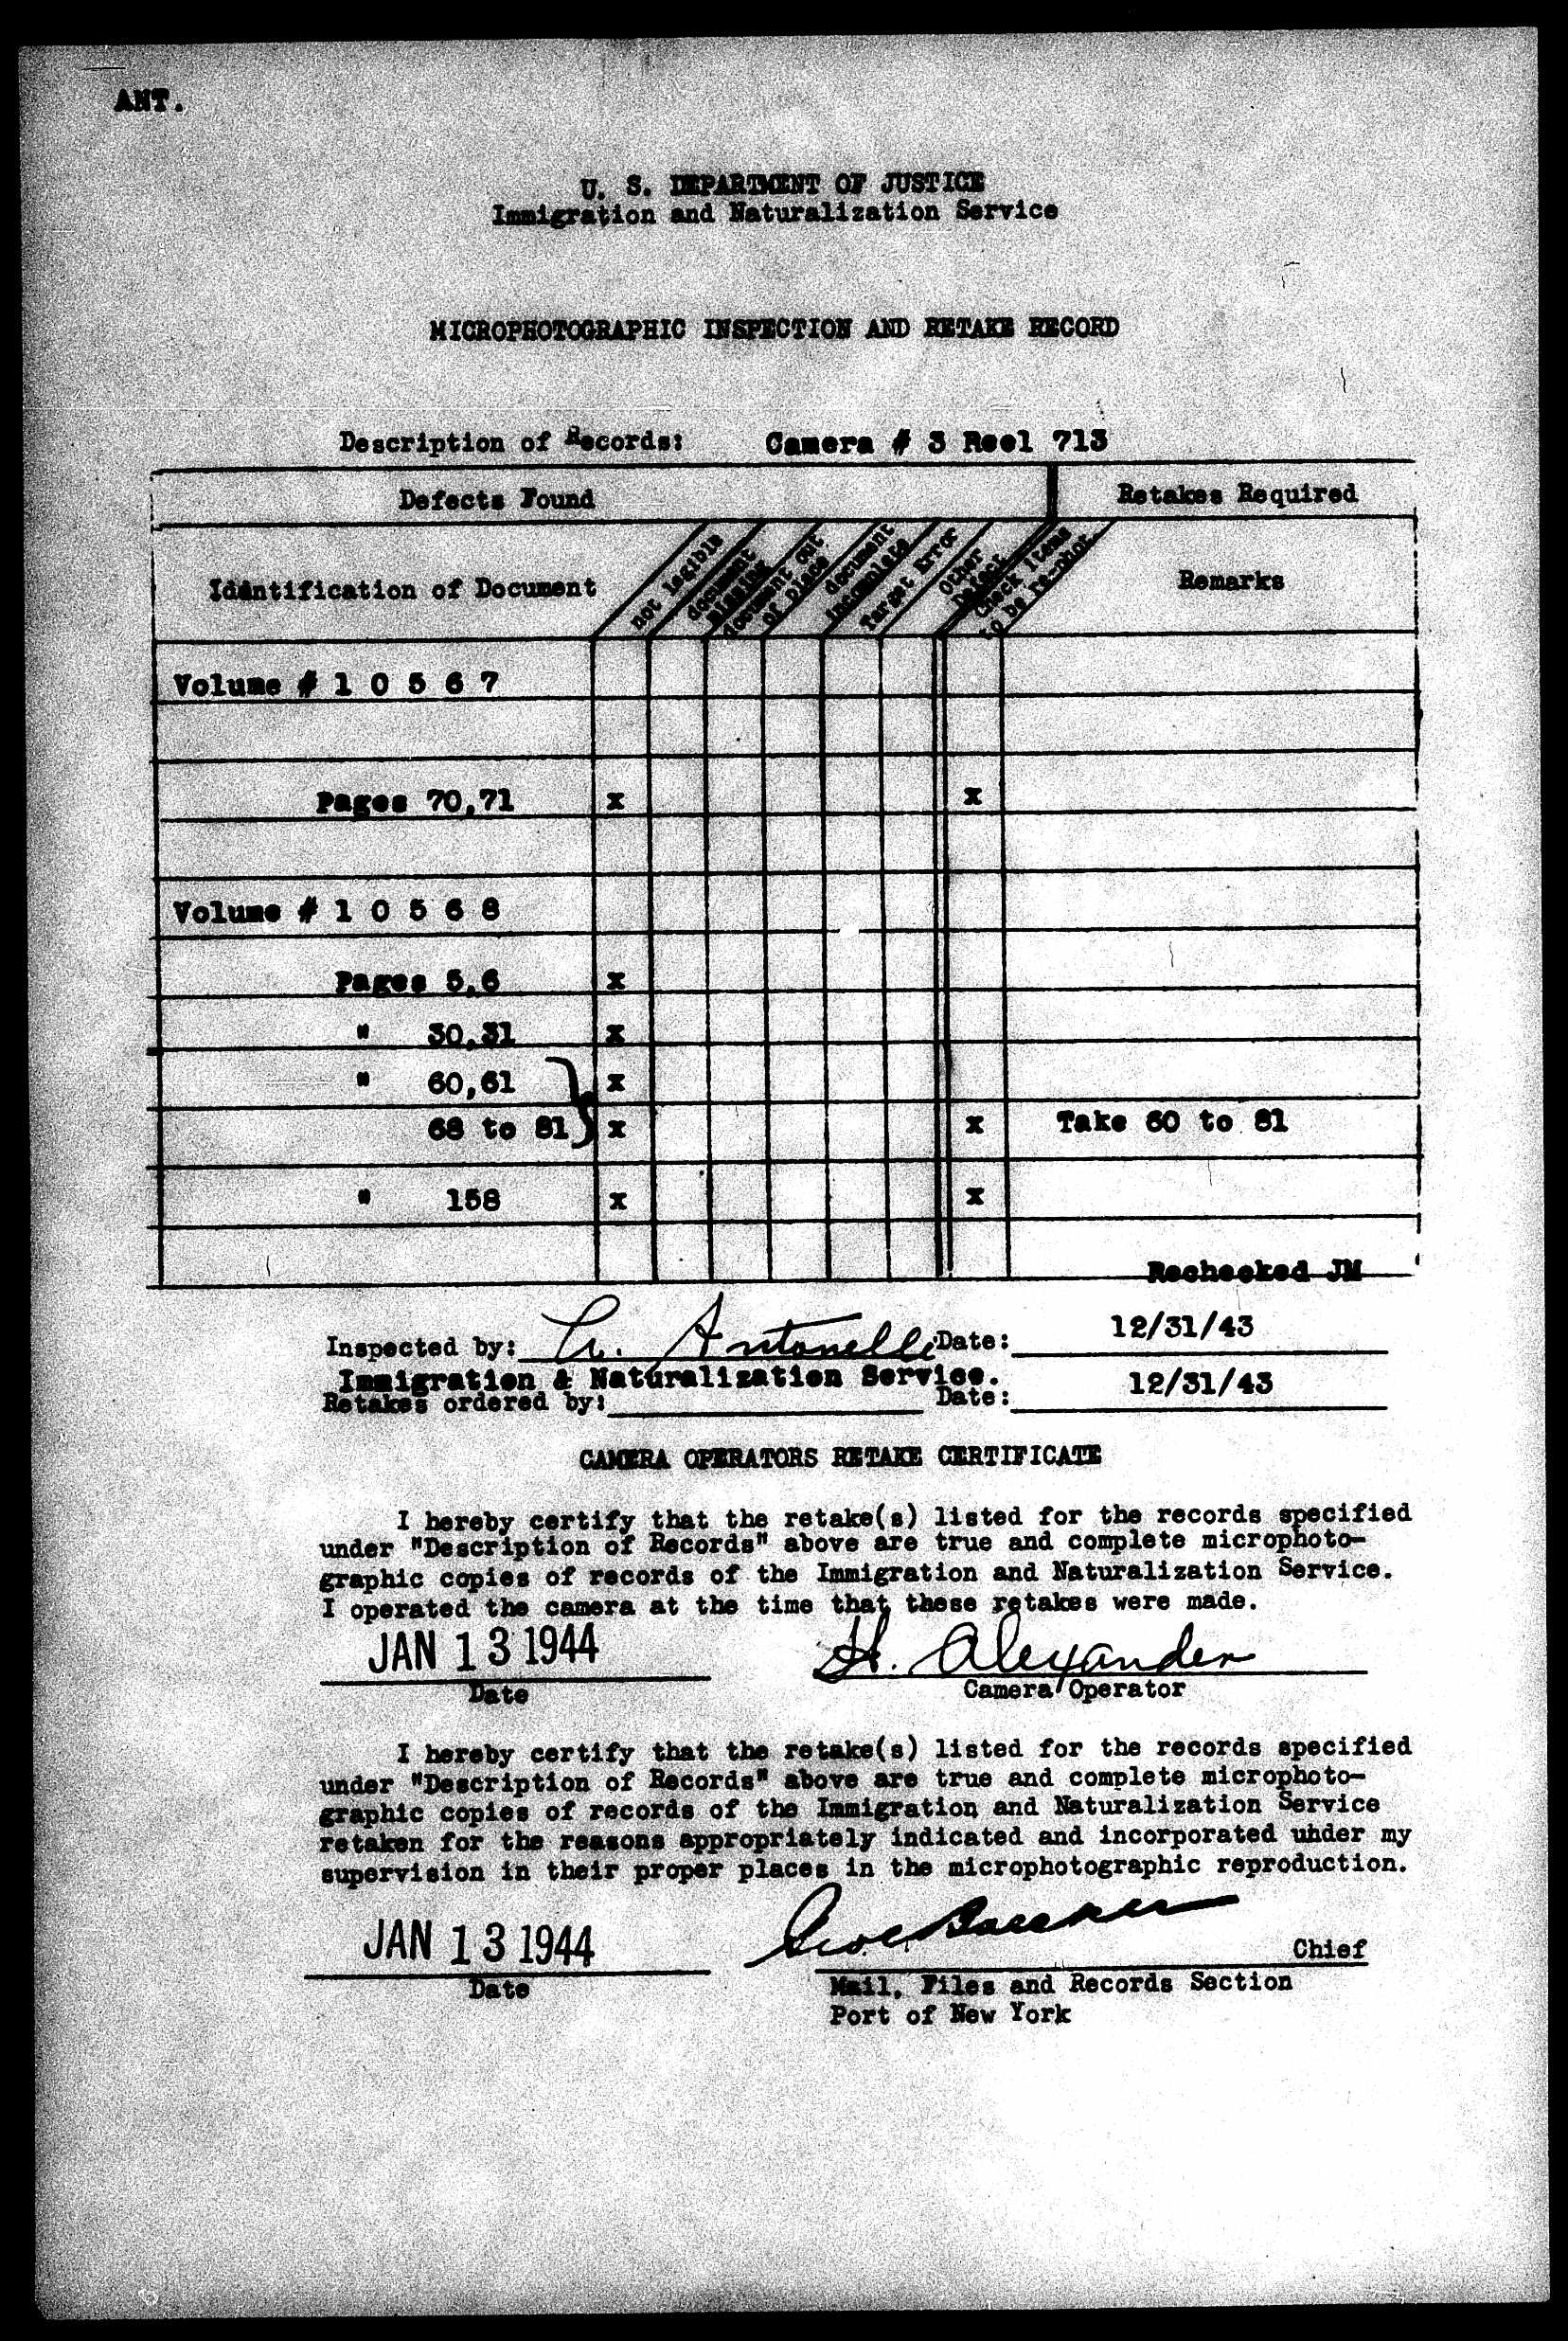 ANT.
U. S. DEPARTMENT OF JUSTICE
Immigration and Naturalization Service
MICROPHOTOGRAPHIC INSPECTION AND RETAKE RECORD
Description of Records: Camera # 3 Reel 713
Defects Found Retakes Required
Identification of Document
not legible
document missing
document out of place
document incomplete
Target Error
Other Defect
Check items to be re-shot
Remarks
Volume # 1 0 5 6 7
Pages 70,71 x x
Volume # 1 0 5 6 8
Pages 5,6 x
" 30,31 x
" 60,61 x
68 to 81 } x x Take 60 to 81
" 158 x x
Rechecked JM
Inspected by: A. Antonelli Date: 12/31/43
Immigration & Naturalization Service.
Retakes ordered by: Date: 12/31/43
CAMERA OPERATORS RETAKE CERTIFICATE
I hereby certify that the retake(s) listed for the records specified
under "Description of Records" above are true and complete microphoto-
graphic copies of records of the Immigration and Naturalization Service.
I operated the camera at the time that these retakes were made.
JAN 13 1944 H. Alexander
Date Camera Operator
I hereby certify that the retake(s) listed for the records specified
under "Description of Records" above are true and complete microphoto-
graphic copies of records of the Immigration and Naturalization Service
retaken for the reasons appropriately indicated and incorporated under my
supervision in their proper places in the microphotographic reproduction.
JAN 13 1944 Chief
Date Mail, Files and Records Section
Port of New York